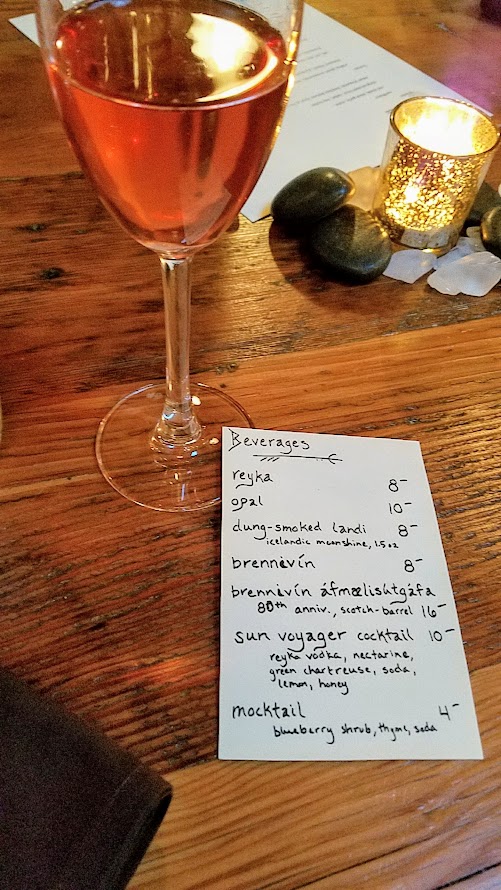 Beverages
reyka 8-
opal 10-
dung-smoked landi 8-
icelandic moonshine, 1.5oz
brennivín 8-
brennivín áfmælisútgáfa
80th anniv., scotch-barrel 16-
sun voyager cocktail 10-
reyka vodka, nectarine,
green chartreuse, soda,
lemon, honey
mocktail 4-
blueberry shrub, thyme, soda